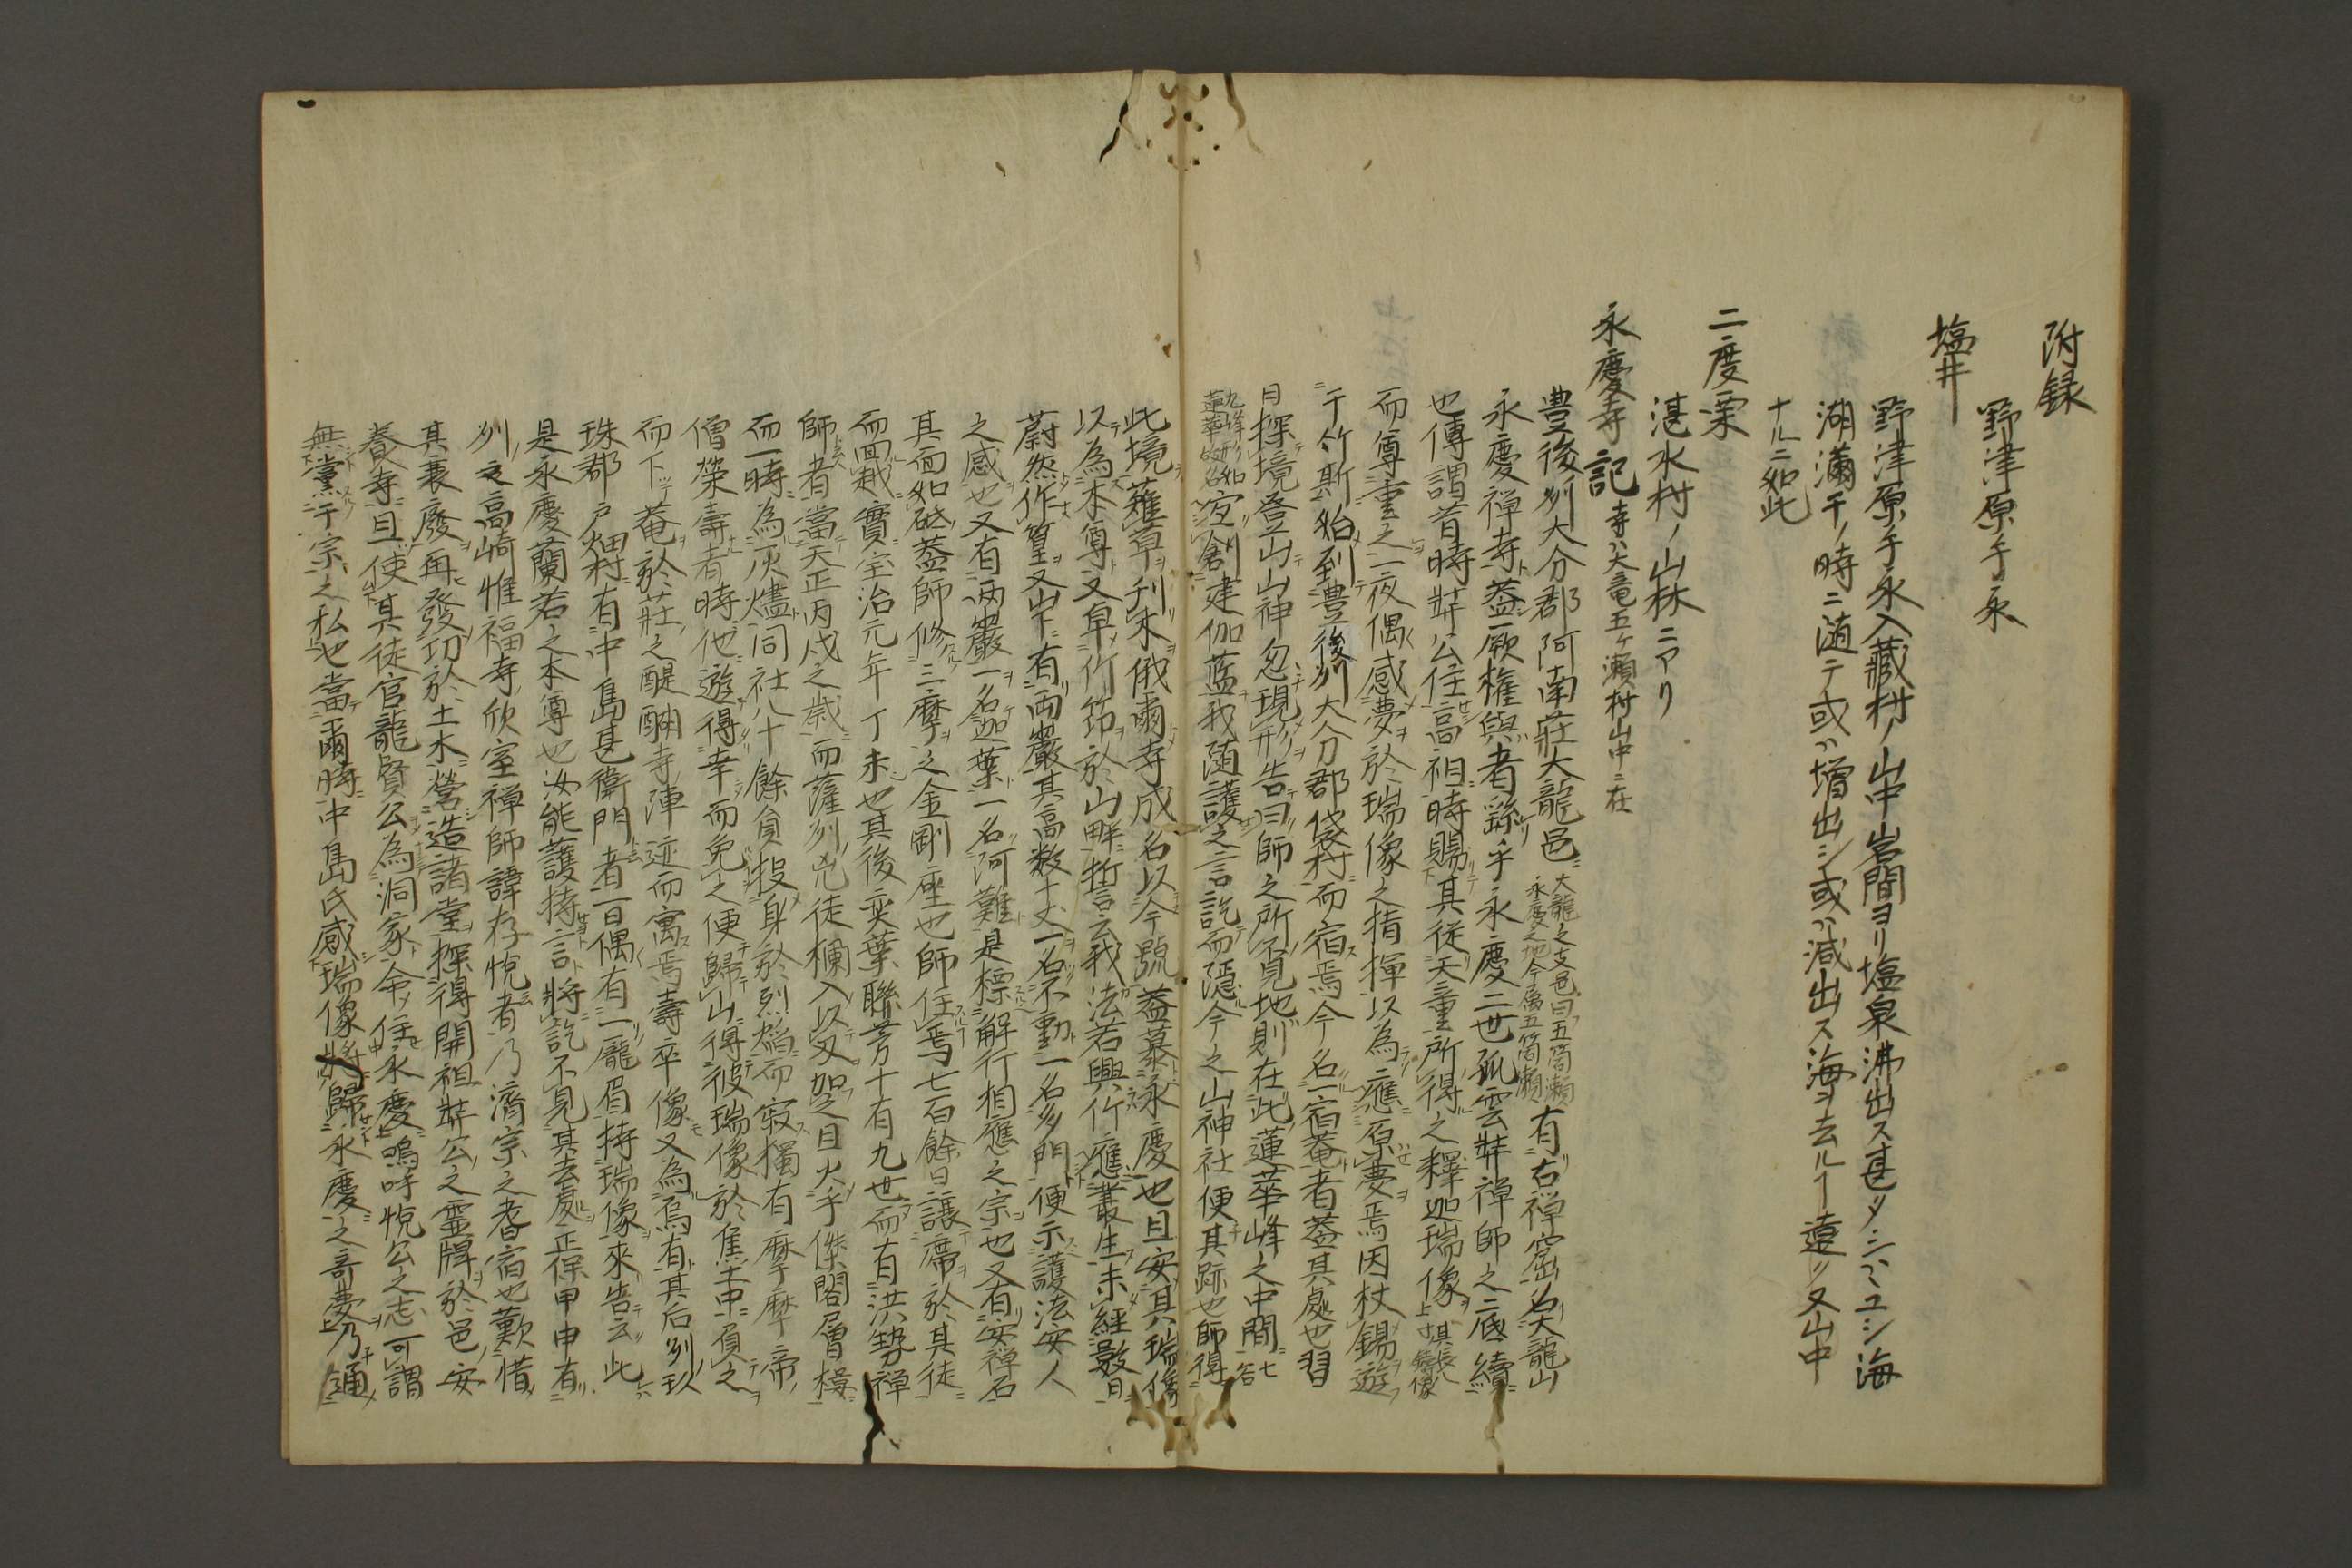 附録
野津原手永
塩井
野津原手永入蔵村ノ山中岩間ヨリ塩泉沸出ス甚タシハユシ海
湖滿干ノ時ニ随テ或ハ増出シ或ハ減出ス海ヲ去ルヿ遠ク又山中
ナルニ如此
二度栗
湛水村ノ山林ニアリ
永慶寺記 寺ハ大竜五ケ瀬村山中ニ在
豊後州大分郡阿南荘大龍邑 大龍之支邑曰五箇瀬永慶之地今属五箇瀬 有右禅窟名大龍山
永慶禅寺蓋厥権輿者繇乎永慶二世孤雲弉禅師之二底續
也傳謂昔時弉公住高祖時賜其従天童所得之釋迦瑞像
而尊重之一夜偶感夢於瑞像之指揮以為應原夢焉因杖錫遊
于竹斯始到豊後州大分郡袋村而宿焉今名一宿菴者蓋其處也翌
日探境登山山神忽現形告曰師之所覓地則在此蓮華峰之中間
九峰形如蓮華故名 宜創建伽藍我随護之言訖而隠今之山神社便其跡也師得
此境薙草刊木俄爾寺成名以今號蓋慕永慶也且安其瑞像
以為本尊又卓竹笻於山畔誓云我法若興竹應叢生未經數日
蔚然作篁又山下有両巖其高数十丈一名不動一名多門便示護法安人
之感也又有両巖一名迦葉一名阿難是標解行相應之宗也又有安禅石
其面如砥蓋師修三摩之金剛座也師住焉七百餘日譲席於其徒
而回越實宝治元年丁未也其後奕葉聯芳十有九世而有洪勢禅
師者當天正丙戌之歳而薩州兇徒欄入以刄加之目火乎傑閣層樓
而一時為灰燼同社八十餘員投身於烈焰而寂獨有摩摩帝
僧榮壽者時他遊得幸而免之便歸山得彼瑞像於焦土中負之
而下菴於荘之醍醐寺陣迹而寓焉壽卒像又為烏有其后州玖
珠郡戸畑村有中島甚衛門者一日偶有一龐眉持瑞像來告云此
是永慶蘭若之本尊也汝能護持言將訖不見其去處正保甲申有
州之高崎惟福寺欣室禅師諱存悦者乃濟宗之耆宿也歎惜
其衰廢再發功於土木營造諸堂探得開祖弉公之霊牌於邑安
養寺且使其徒官龍賢公為洞家令住永慶嗚呼悦公之志可謂
無黨于宗之私也當爾時中島氏感瑞像將歸永慶之奇夢乃通